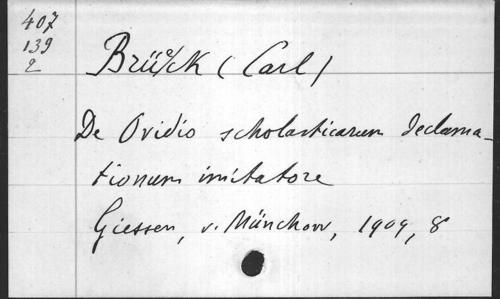 407
139
2
Brück (Carl)
De Ovidio scholasticarum declama-
tionum imitatore
Giessen, v. Münchow, 1909, 8°